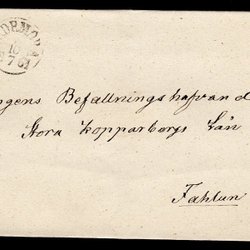 10
7 61
ngens Befallningshafvande
Stora Kopparbergs Län
Fahlun